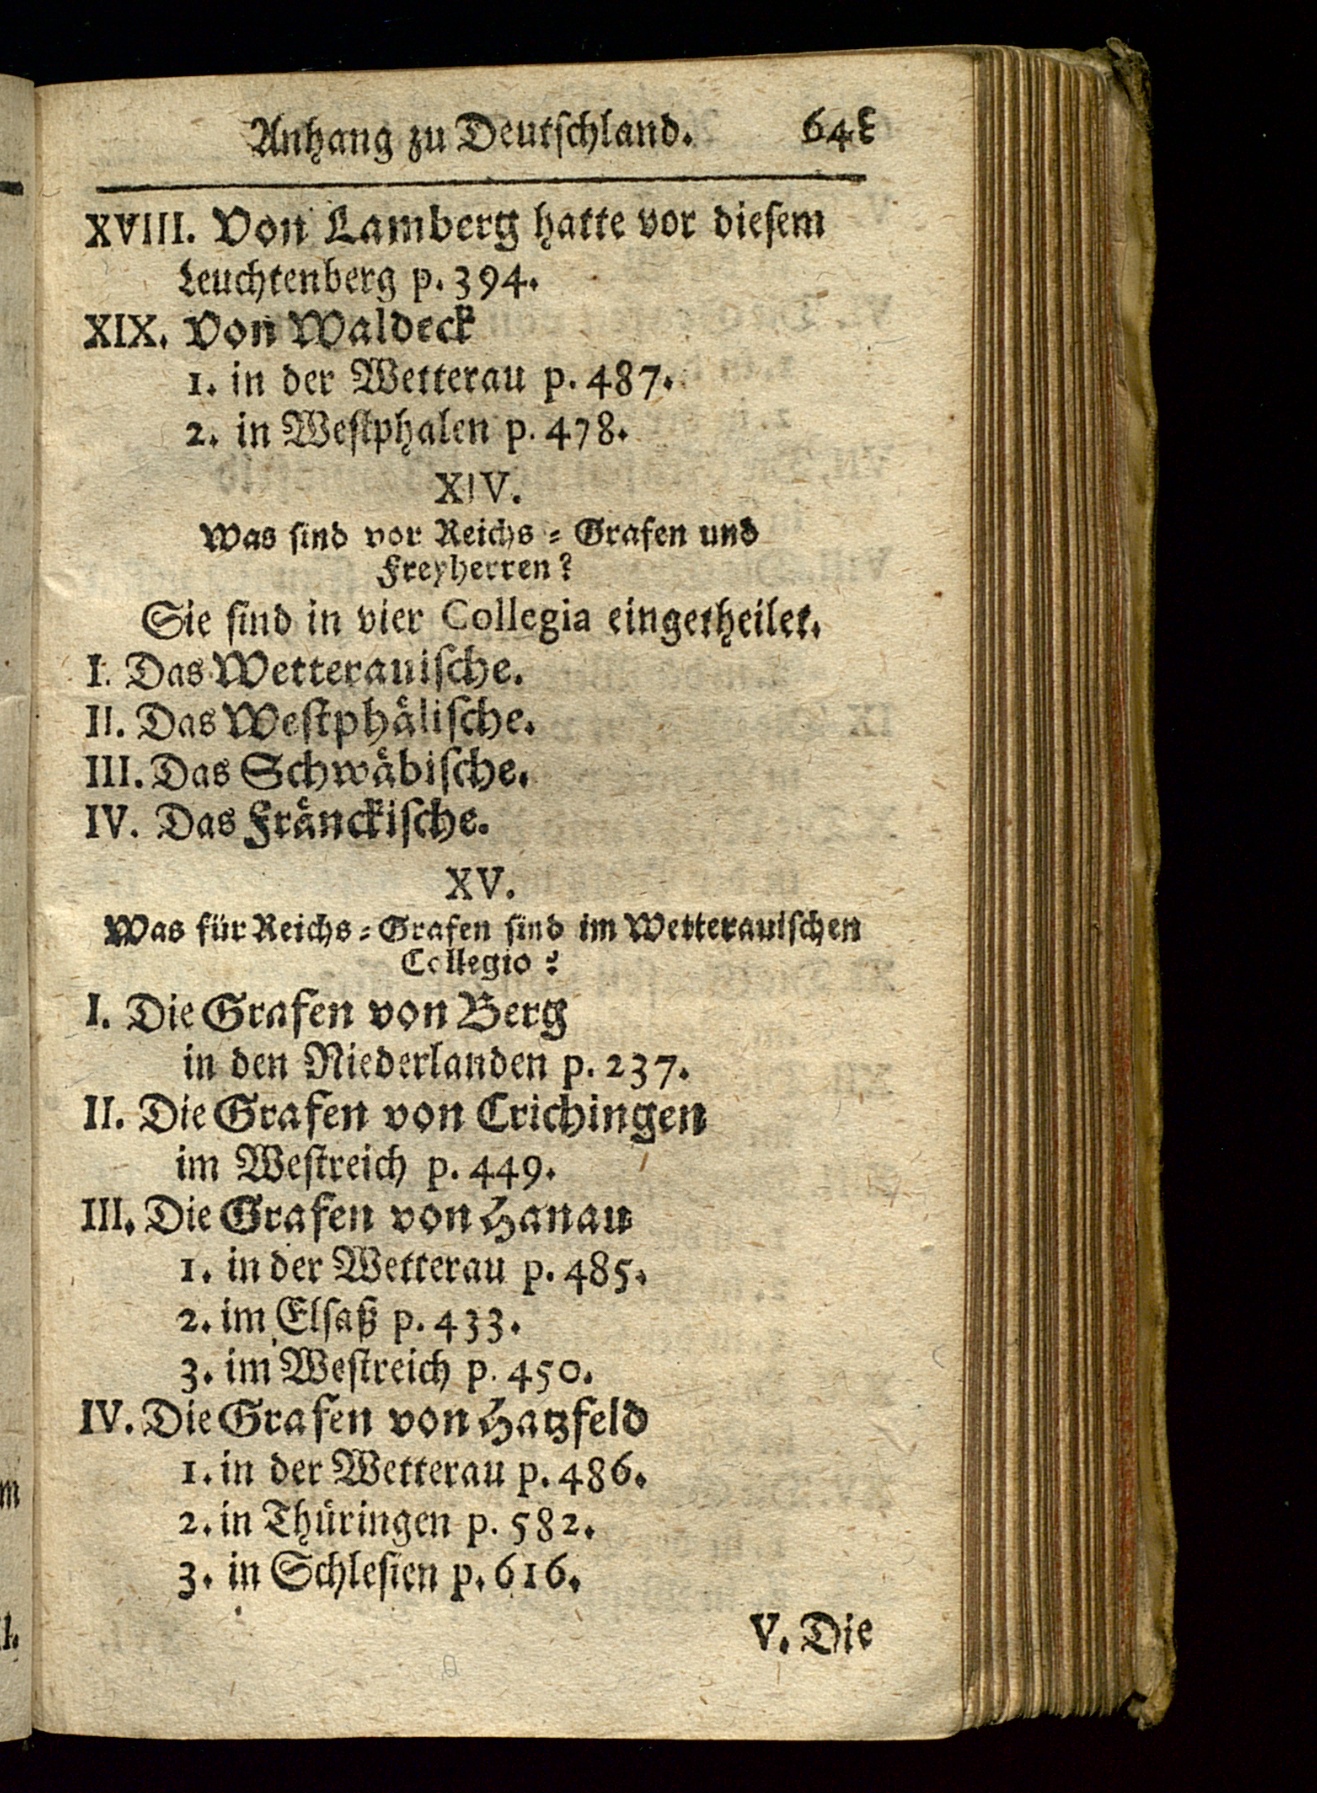 Anhang zu Deutschland. 641
XVIII. Von Lamberg hatte vor diesem
Leuchtenberg p. 394.
XIX. Von Waldeck
1. in der Wetterau p. 487.
2. in Westphalen p. 478.
XIV.
Was sind vor Reichs-Grafen und
Freyherren?
Sie sind in vier Collegia eingetheilet.
I. Das Wetterauische.
II. Das Westphälische.
III. Das Schwäbische.
IV. Das Fränckische.
XV.
Was für Reichs-Grafen sind im Wetterauischen
Collegio?
I. Die Grafen von Berg
in den Niederlanden p. 237.
II. Die Grafen von Crichingen
im Westreich p. 449.
III. Die Grafen von Hanau
1. in der Wetterau p. 485.
2. im Elsaß p. 433.
3. im Westreich p. 450.
IV. Die Grafen von Hatzfeld
1. in der Wetterau p. 486.
2. in Thüringen p. 582.
3. in Schlesien p. 616.
V. Die